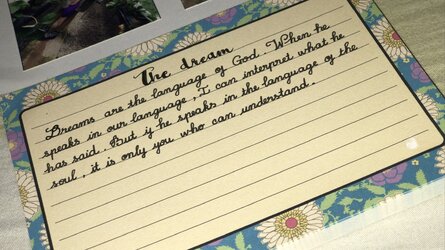 The dream
Dreams are the language of God. When he
speaks in our language, I can interpret what he
has said. But if he speaks in the language of the
soul, it is only you who can understand.